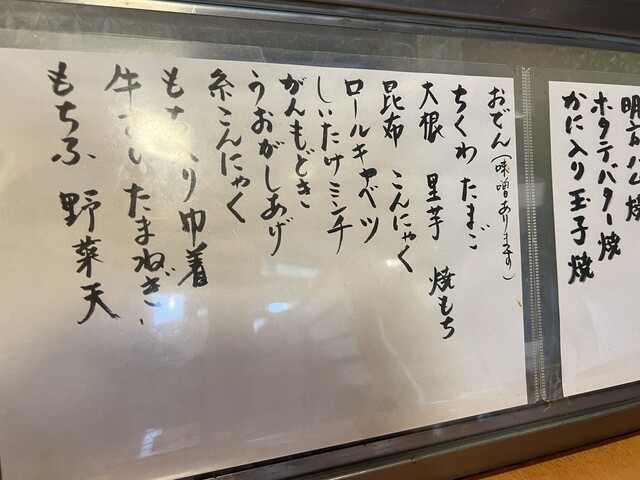 明石焼
ホタテバター焼
かに入り玉子焼
おでん(味噌あります)
ちくわ たまご
大根 里芋 焼もち
昆布 こんにゃく
ロールキャベツ
しいたけミンチ
がんもどき
うおがしあげ
糸こんにゃく
もち入り巾着
牛すじ たまねぎ
もちふ 野菜天